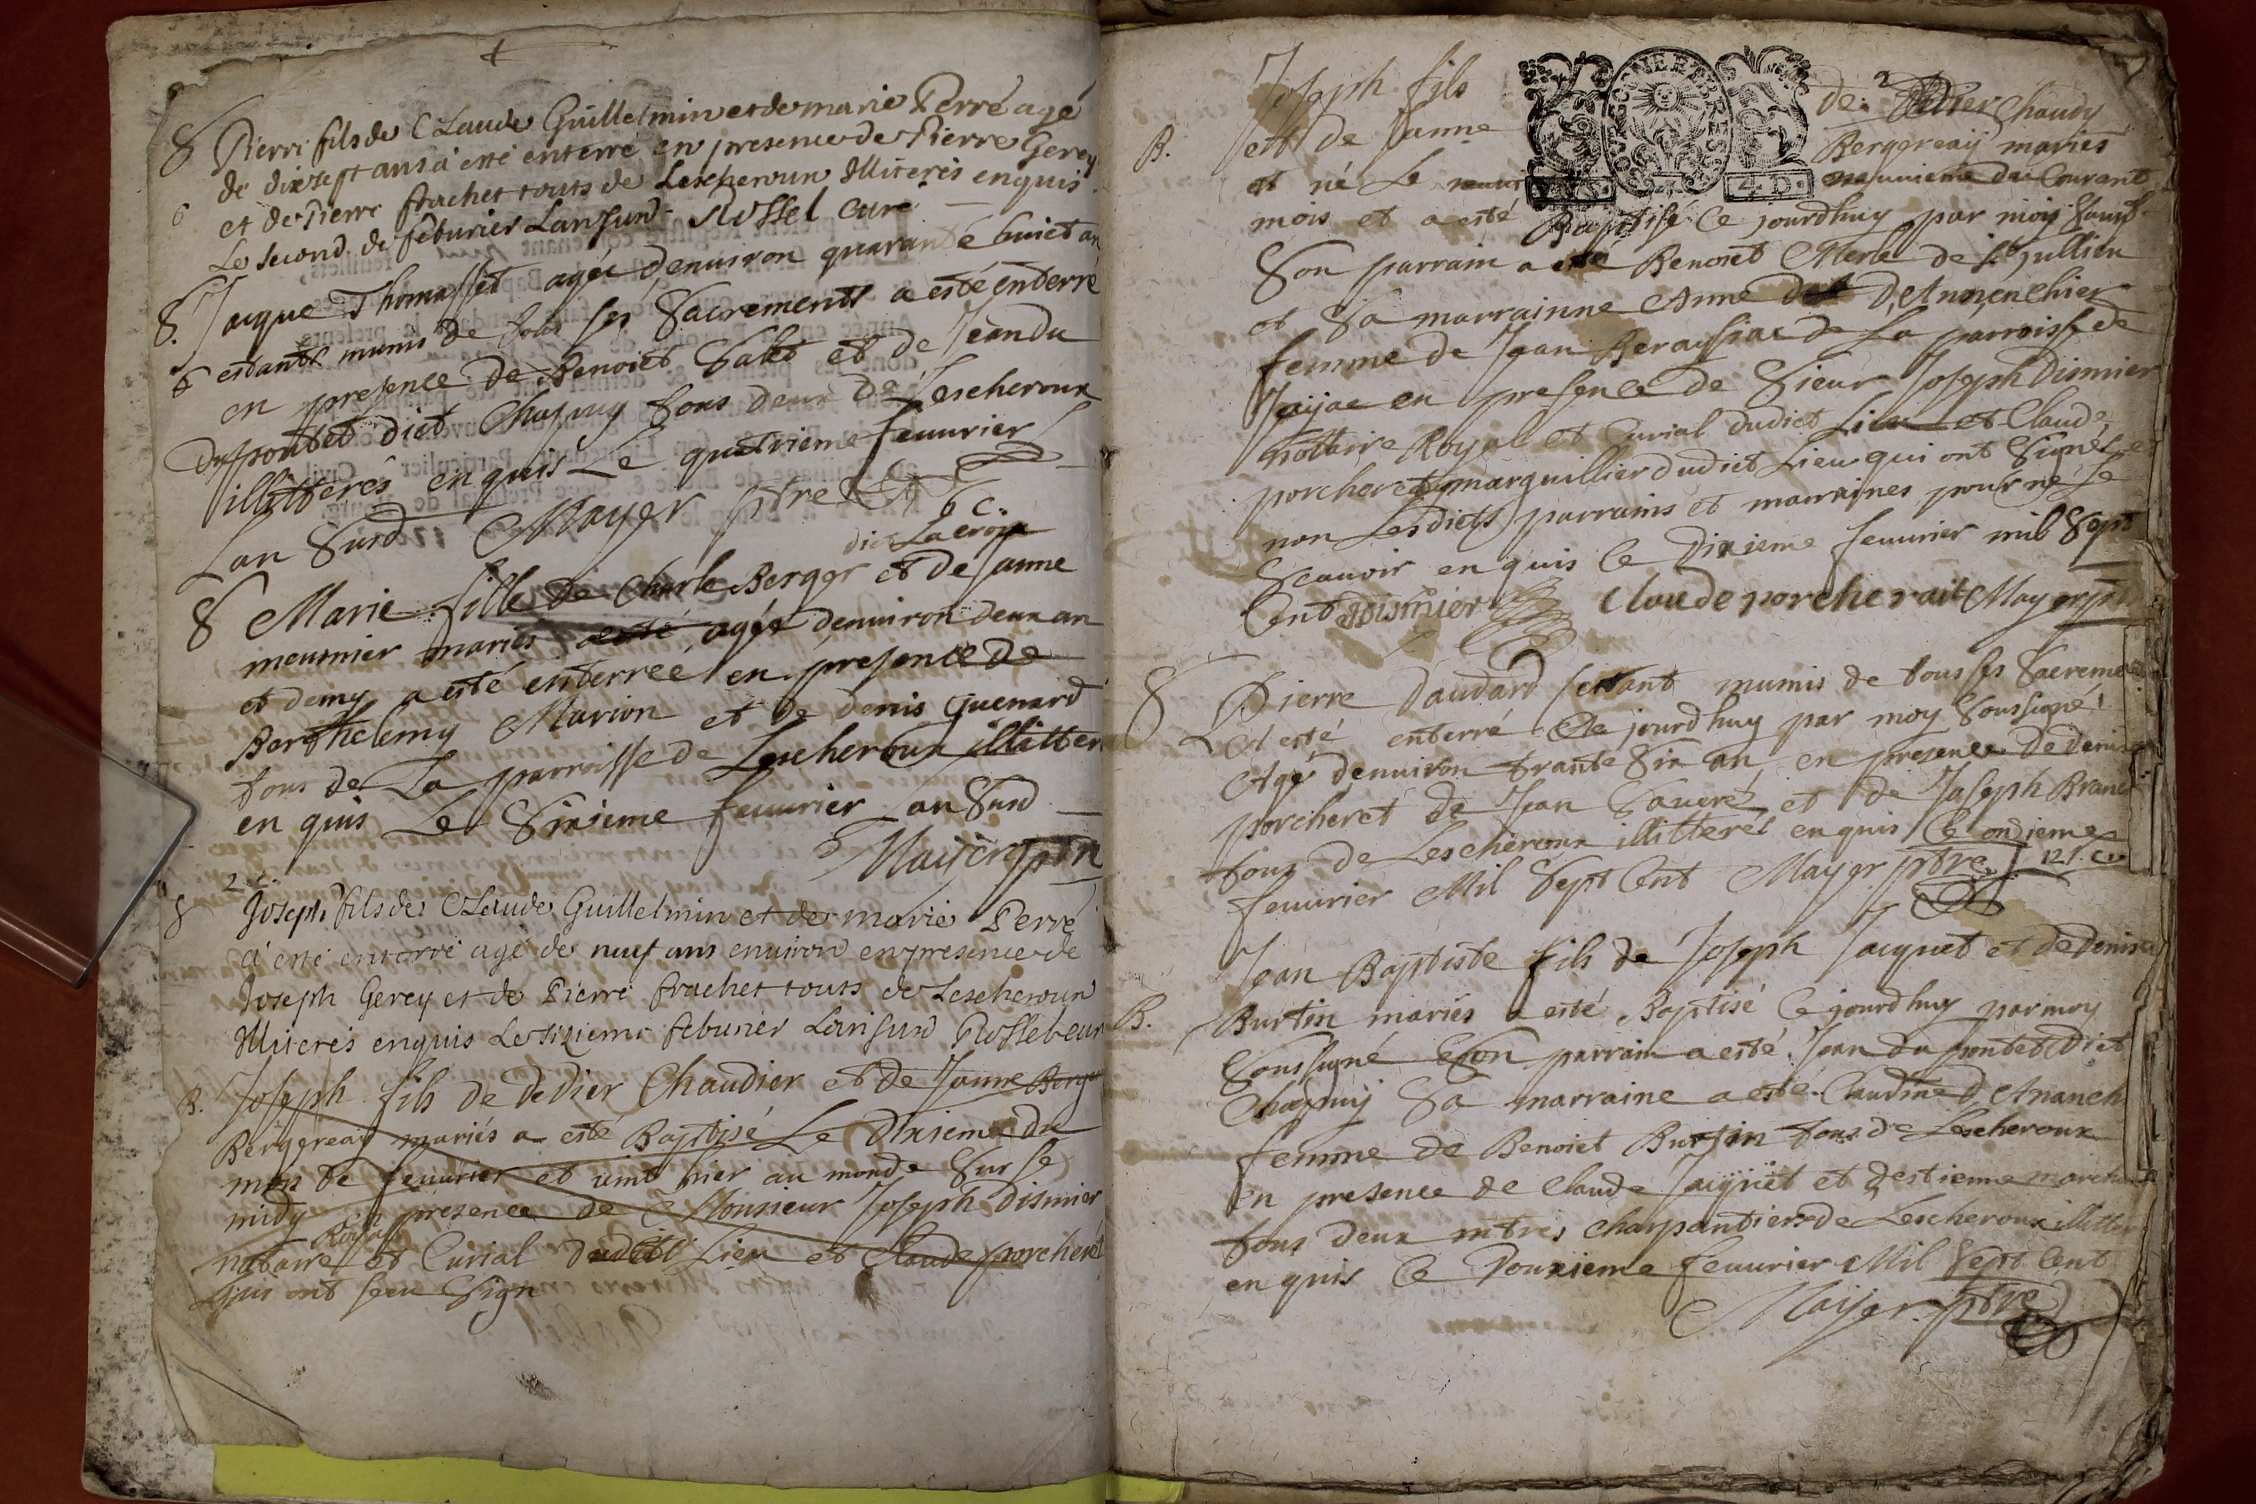 S Pierre fils de Claude Guillelmin et de marie Perré agé
de dixsept ans à esté enterré en presence de Pierre Gerey
6 et de Pierre frachet touts de Lescheroux Illiterés enquis
Le second de feburier Lansusd Russel curé
S. Jacque Thomasset agée denuiron quarante huict an
6 estants munis de tous ses Sacrements a esté enterré
en presence de Benoiet Galet et de Jean du
dupontet diet Chapuy tous deux de Lescheroux
illitterés enquis Le quatrieme feuurier
Lan Susd Mayer ptre
6 c.
diet Lacroix
S Marie fille de Charle Berger et de Janne
meusnier mariés a esté agée denuiron deux an
et demy a esté enterreé en presence de
Berthelemy Marion et de denis Guenard
tous de La parroisse de Lescheroux illitter
en quis Le Sixieme feuurier Lan Susd
Mayer ptre
2 c.
S Joseph fils de Claude Guillelmin et de marie Perré
à esté enterré agé de neuf ans environ en presence de
Joseph Gerey et de Pierre frachet touts de Lescheroux
Illiterés enquis Le sixieme feburier Lansusd Russel cur
B. Joseph fils de dedier Chaudier et de Janne Berger
Bergereay mariés a esté Baptisé Le dixieme du
mois de feuurier et uint hier au monde Sur le
midy en presence de Monsieur Joseph dismier
Royal
notaire et Curial dudiet Lieu et Claude porcheret
qui ont sceu Sign
2
B. Joseph fils de Didier Chaudy
et de Janne Bergereaÿ mariés
GNE ET BRESSE
4. D.
et né Le neuuieme du Courant
mois et a esté Baptisé Ce jourdhuy par moy Souss.
Son parrain a esté Benoiet Merle de St Jullien
et Sa marrainne Anne dAnnenchier
femme de Jean Berayssiat de La parroisse de
Jaijac en presence de Sieur Joseph dismier
nottaire Royal et Curial dudiet Lieu et Claude
porcheret marguillier dudiet Lieu qui ont Signés
non Lesdiets parrains et marraines pour ne Le
Scauoir enquis Ce Dixieme feuurier mil Sept
Cent Dismier Claude porcherait Mayer ptre
S Pierre daudard estant munis de tous ses Sacreme
A esté enterré Ce jourdhuy par moy Soussigné
Agé denuiron trante Six an en presence de denis
porcheret de Jean Gaueré et de Joseph Brane
tous de Lescheroux illitterés enquis Ce onzieme
feuurier Mil Sept Cent Mayer ptre
12 f. c.
Jean Baptiste fils de Joseph Jacquet et de Denise
B. Burtin mariés a esté Baptisé Ce jourdhuy par moy
Soussigné Son parrain a esté Jean du pontet Diet
Chapuy Sa marraine a esté Claudine dAnanch
femme de Benoiet Burtin tous de Lescheroux
en presence de Claude Jaquet et destienne march
tous deux mtres charpantiers de Lescheroux illitter
en quis Ce Douxieme feuurier Mil Sept Cent
Maijer ptre